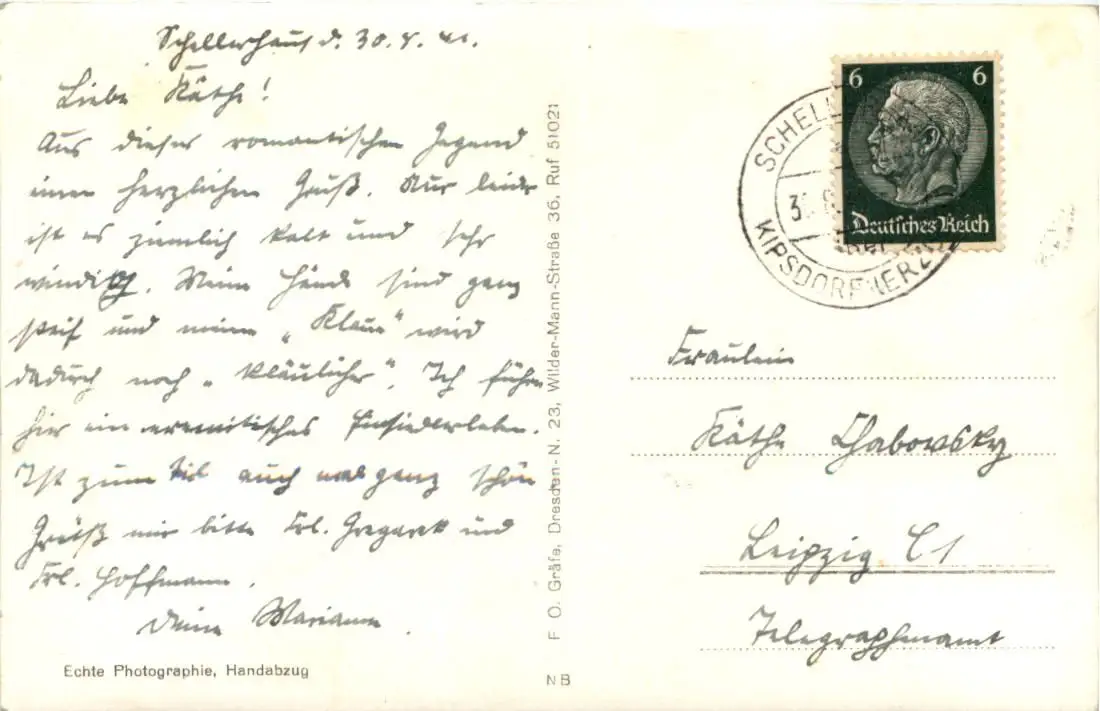 Schellerhau, d. 30.8.41.
Liebe Käthe!
Aus dieser romantischen Gegend
einen herzlichen Gruß. Nur leider
ist es ziemlich kalt und sehr
windig. Meine Hände sind ganz
steif und meine „Klaue" wird
dadurch noch „kläulicher". Ich führe
hier ein eremitisches Einsiedlerleben.
Ist zum teil auch mal ganz schön
Grüß mir bitte Frl. Gregarek und
Frl. Hoffmann.
Deine Marianne.
Echte Photographie, Handabzug
F O. Gräfe, Dresden-N. 23, Wilder-Mann-Straße 36, Ruf 51021
NB
6 6
Deutsches Reich
KIPSDORF
Fräulein
Käthe Chabowsky
Leipzig C1
Telegraphenamt